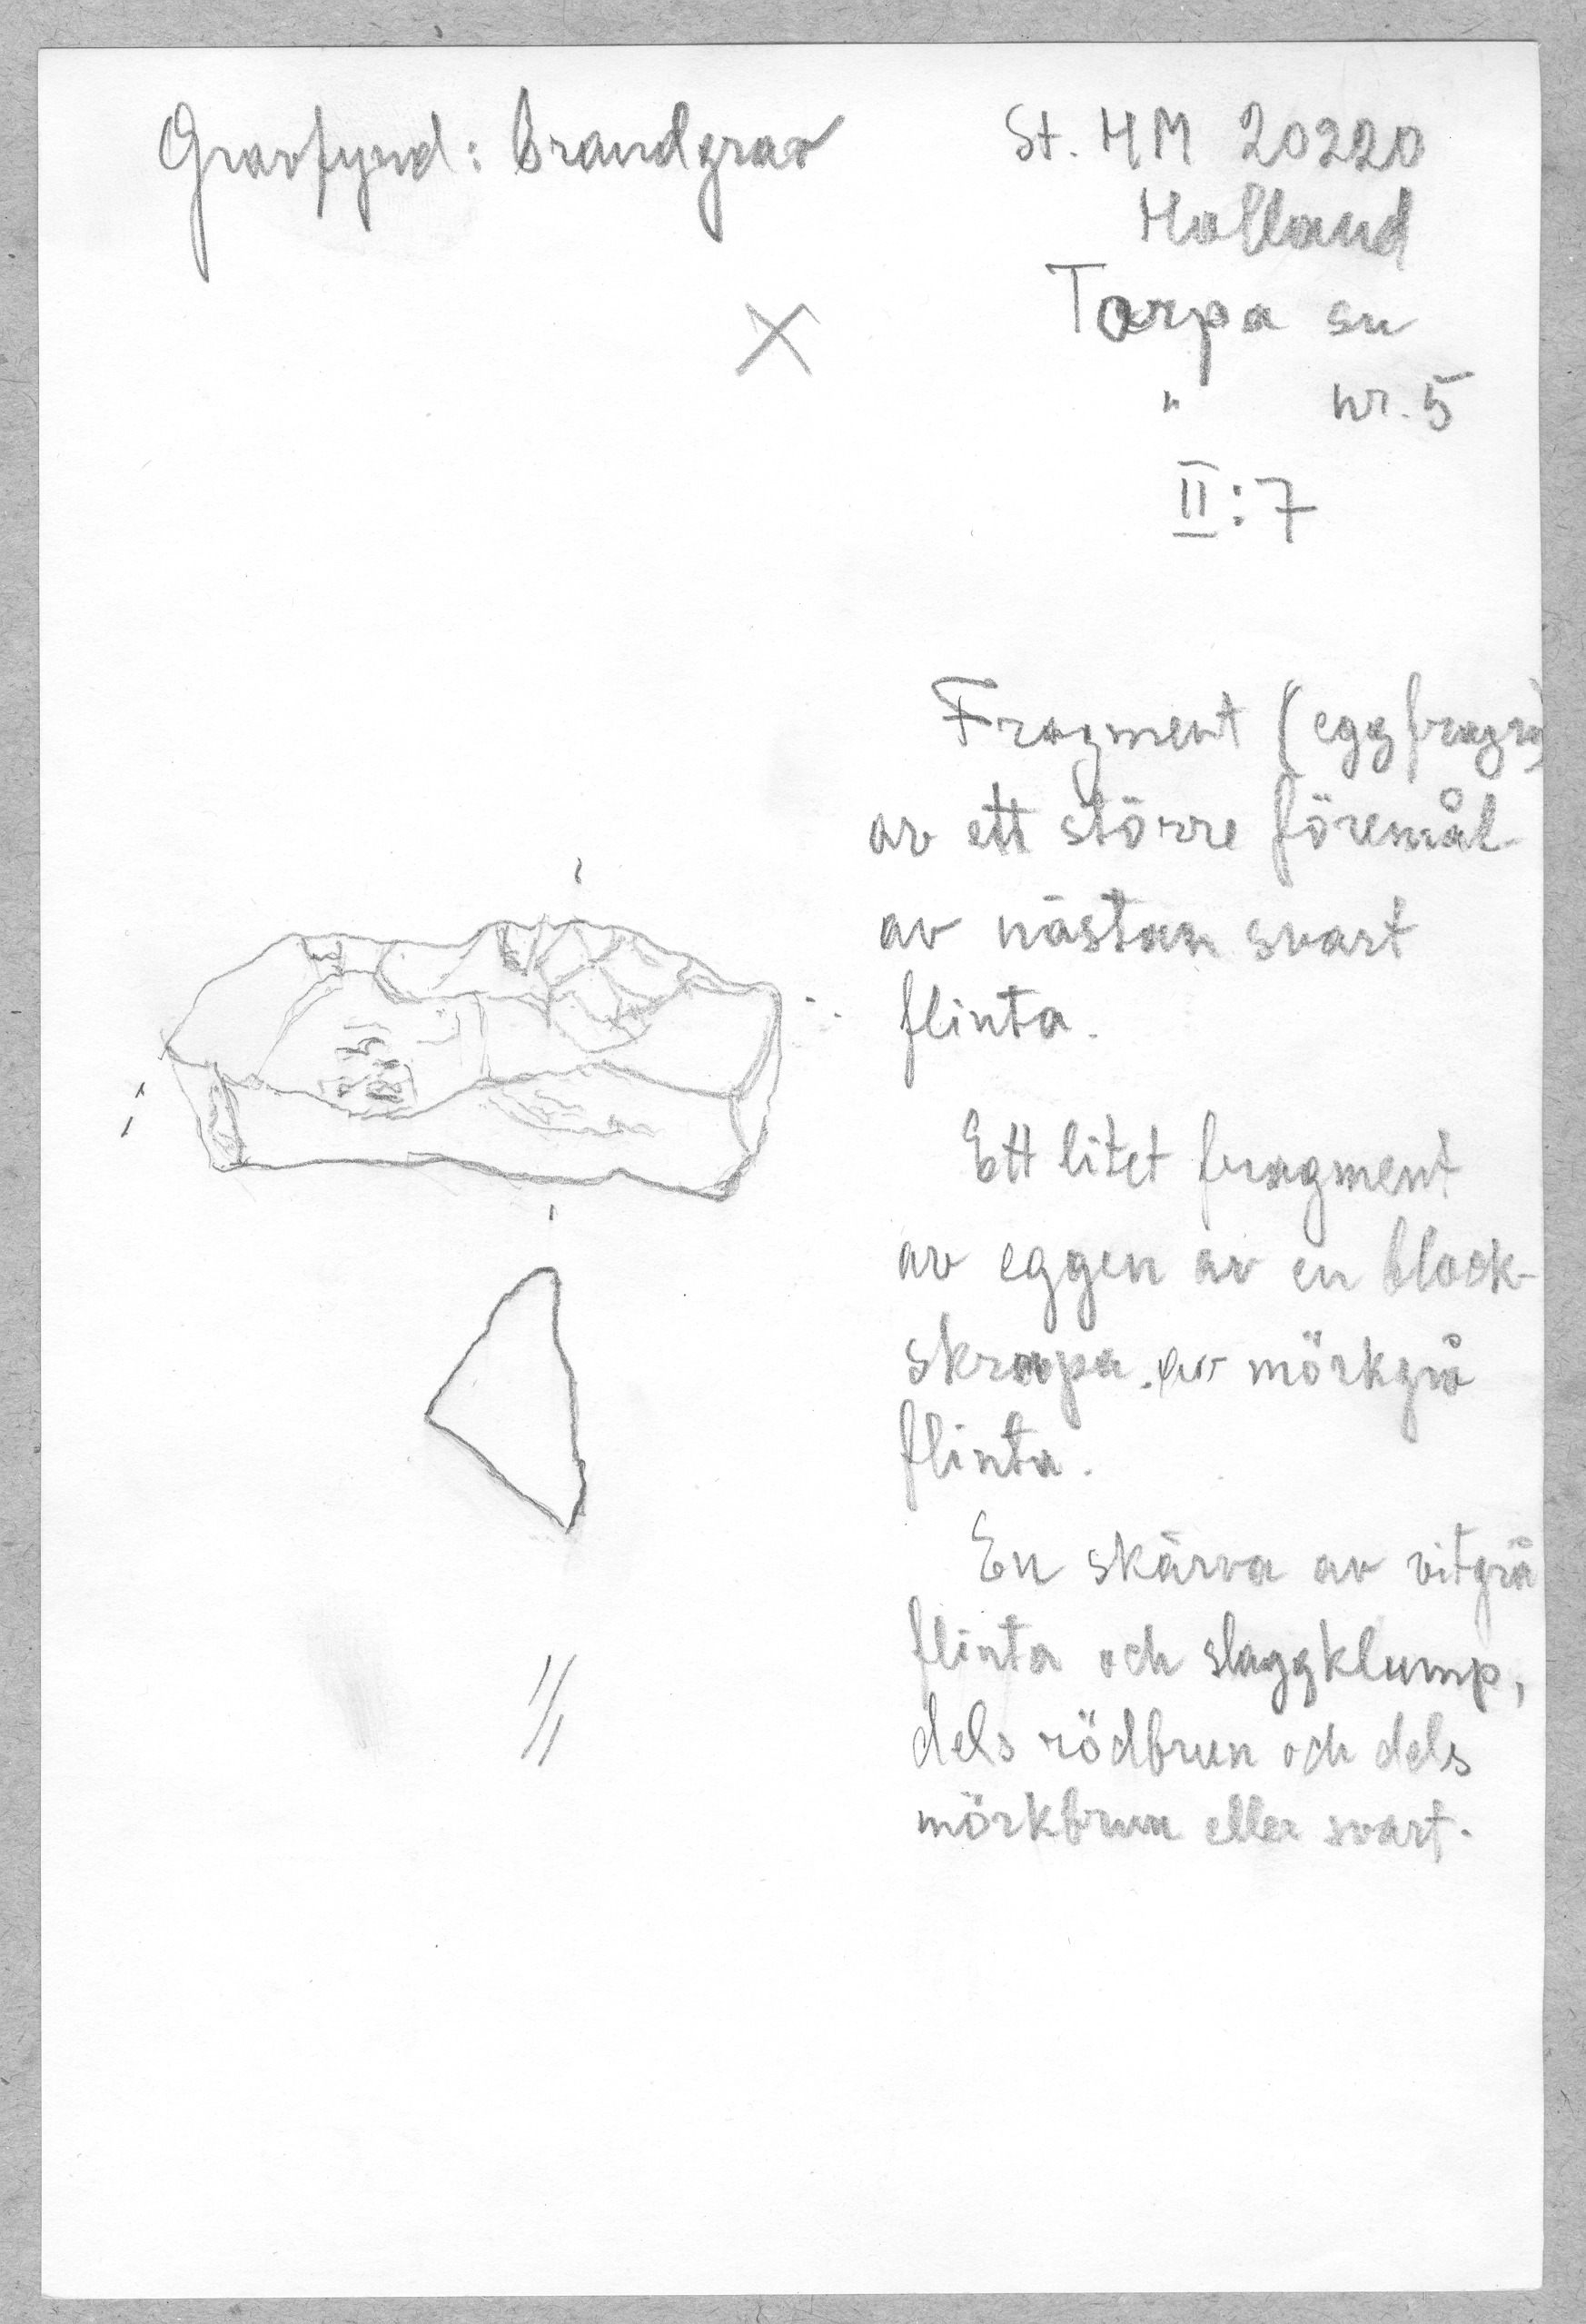 Gravfynd: Brandgrav
St. HM 20220
Halland
Torpa sn
" nr. 5
II:7
Fragment (eggfragm)
av ett större föremål
av nästan svart
flinta.
Ett litet fragment
av eggen av en block-
skrapa. av mörkgrå
flinta.
En skärva av vitgrå
flinta och slaggklump,
dels rödbrun och dels
mörkbrun eller svart.
1/1